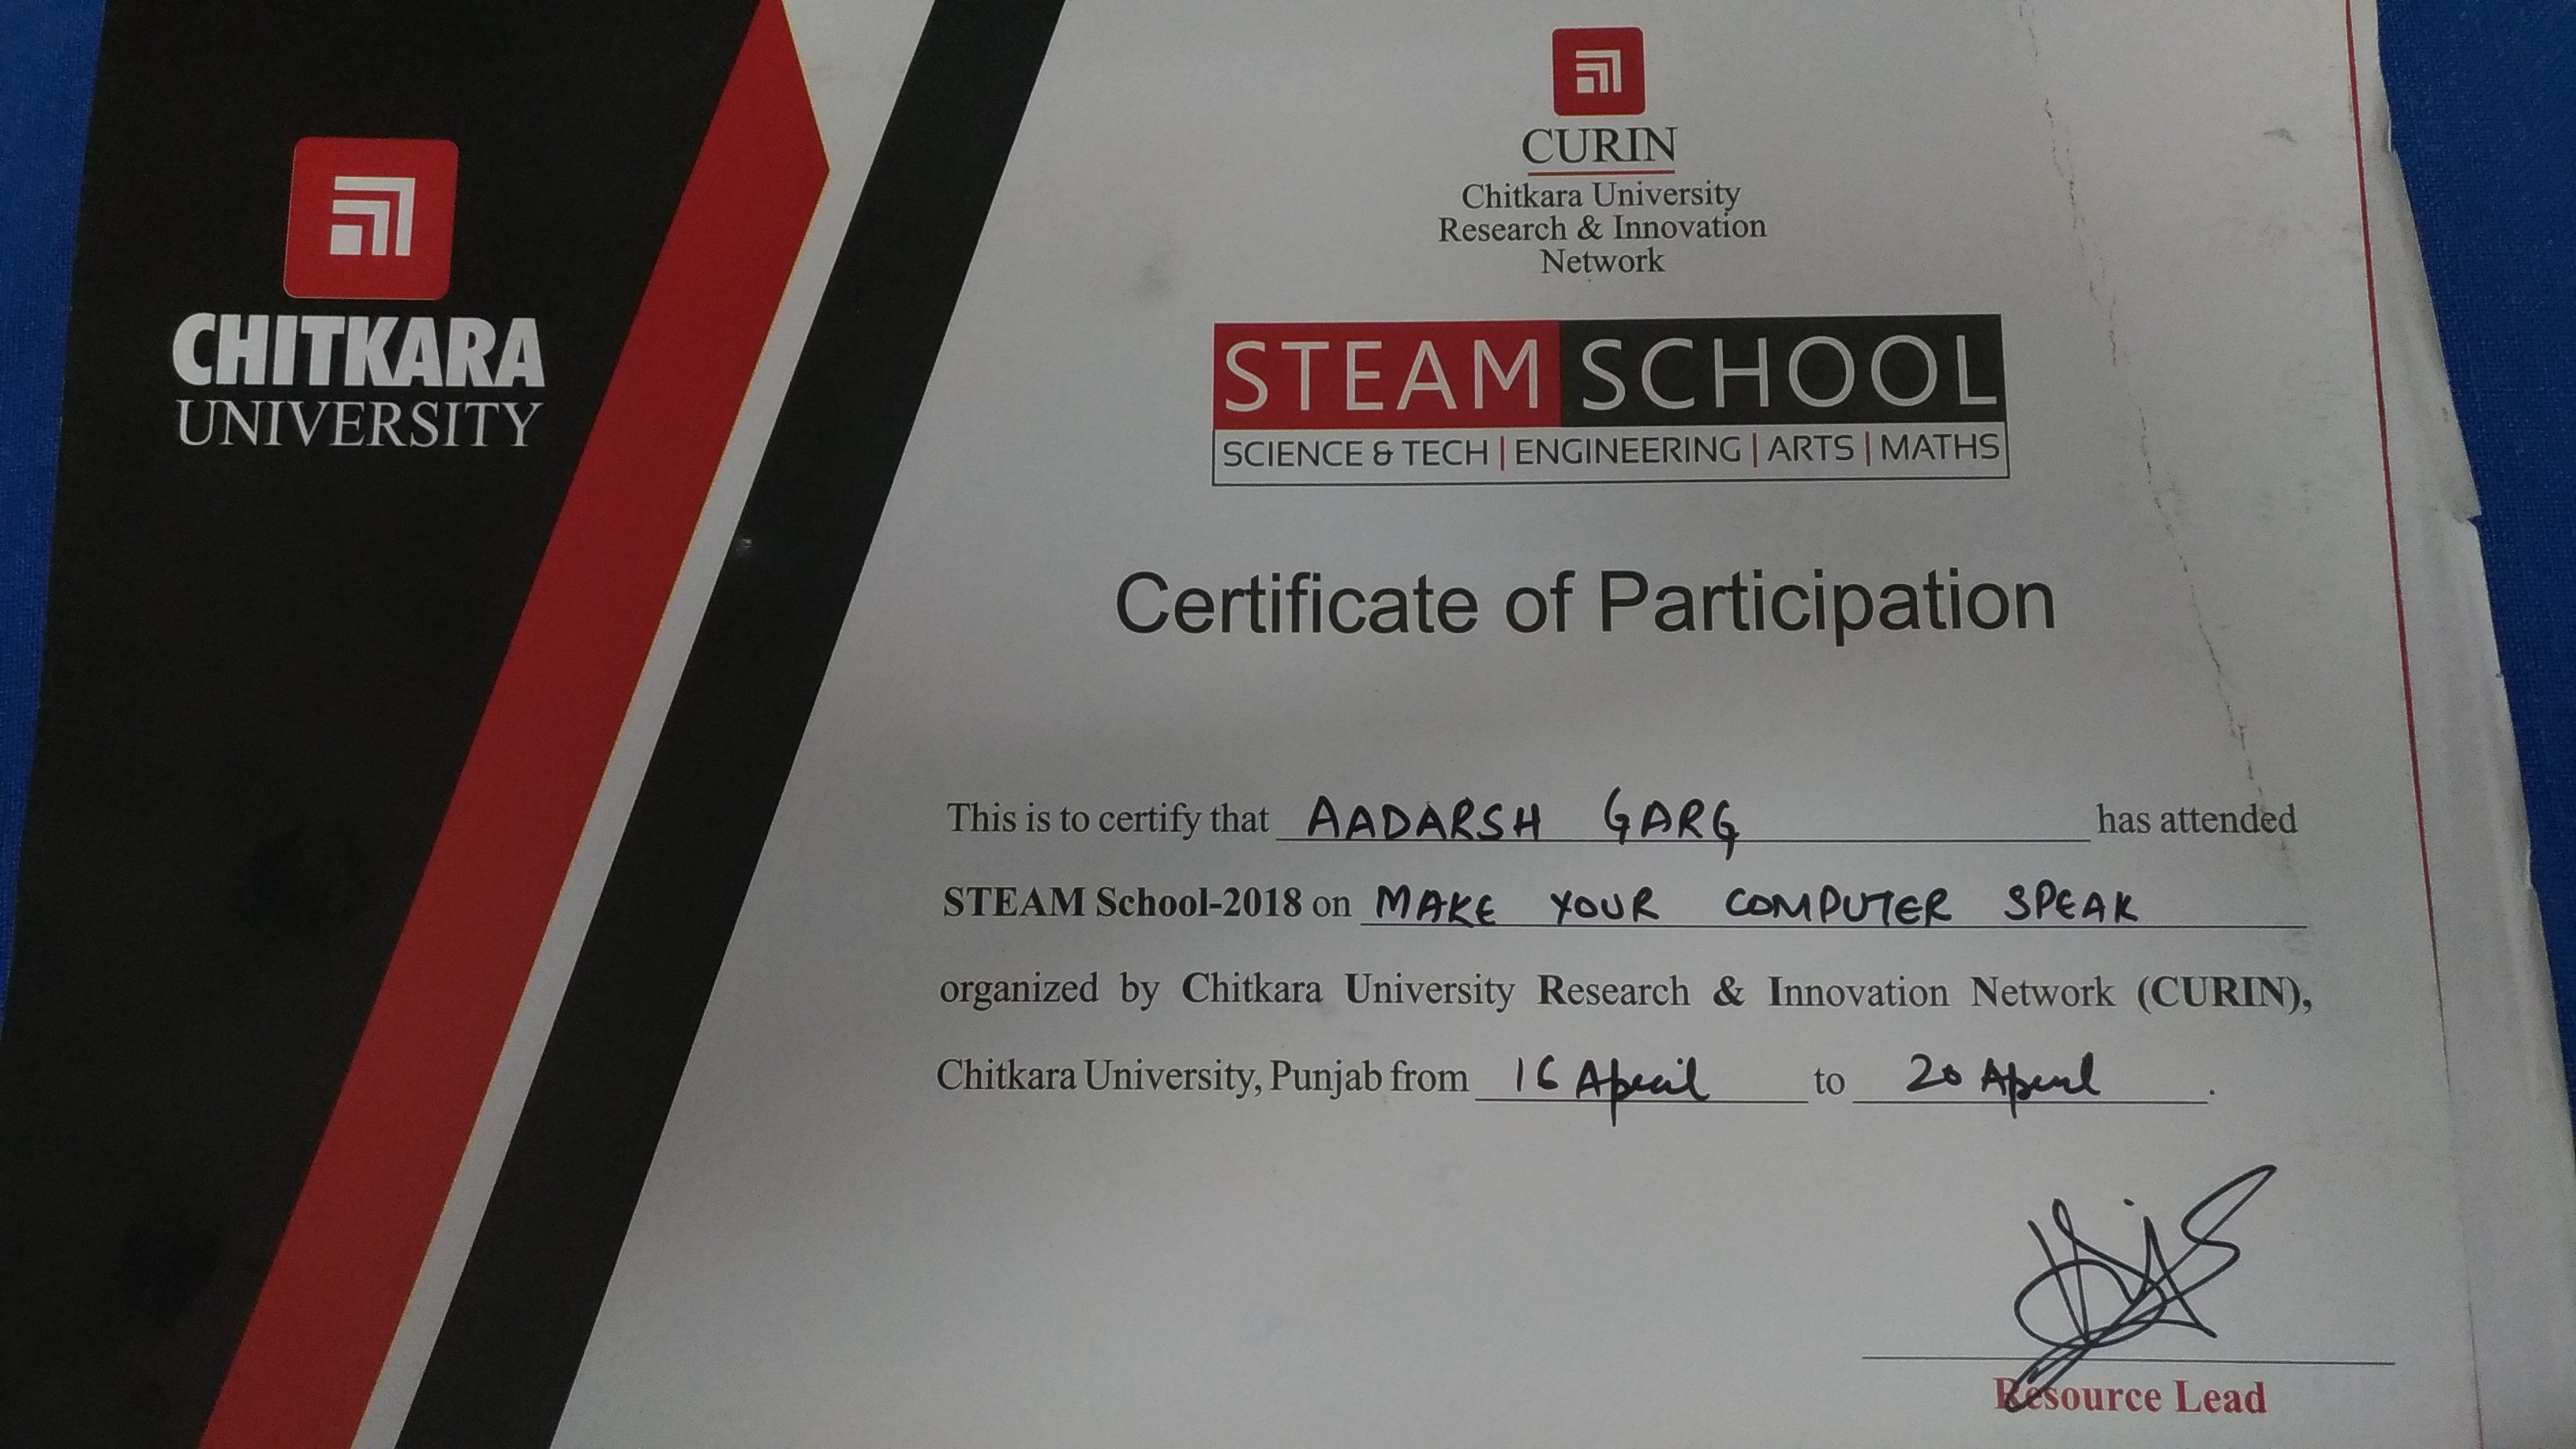 CHITKARA
UNIVERSITY
CURIN
Chitkara University
Research & Innovation
Network
STEAM SCHOOL
SCIENCE & TECH | ENGINEERING | ARTS | MATHS
Certificate of Participation
This is to certify that AADARSH GARG has attended
STEAM School-2018 on MAKE YOUR COMPUTER SPEAK
organized by Chitkara University Research & Innovation Network (CURIN),
Chitkara University, Punjab from 16 April to 20 April.
Resource Lead